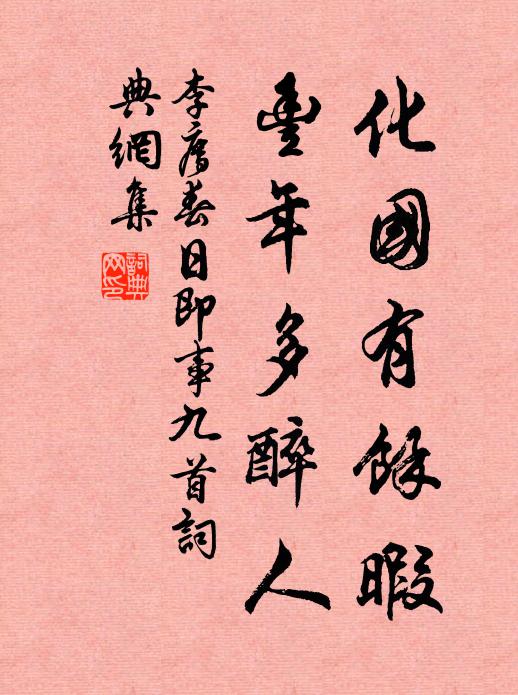 化國有餘暇
豐年多醉人
李廌春日即事九首詞
典網集
詞典
网印